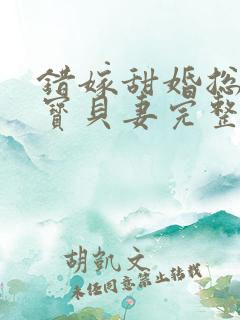 错嫁甜婚总
寶貝妻完整
胡凯文
未经同意禁止转载